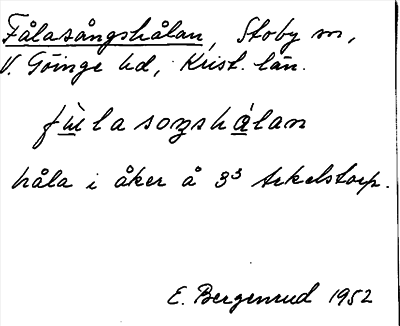 Fålasångshålan, Stoby sn,
V. Göinge hd, Krist. län.
fù̲lasoŋshá̲lan
håla i åker å 3³ Arkelstorp.
E. Bergenrud 1952